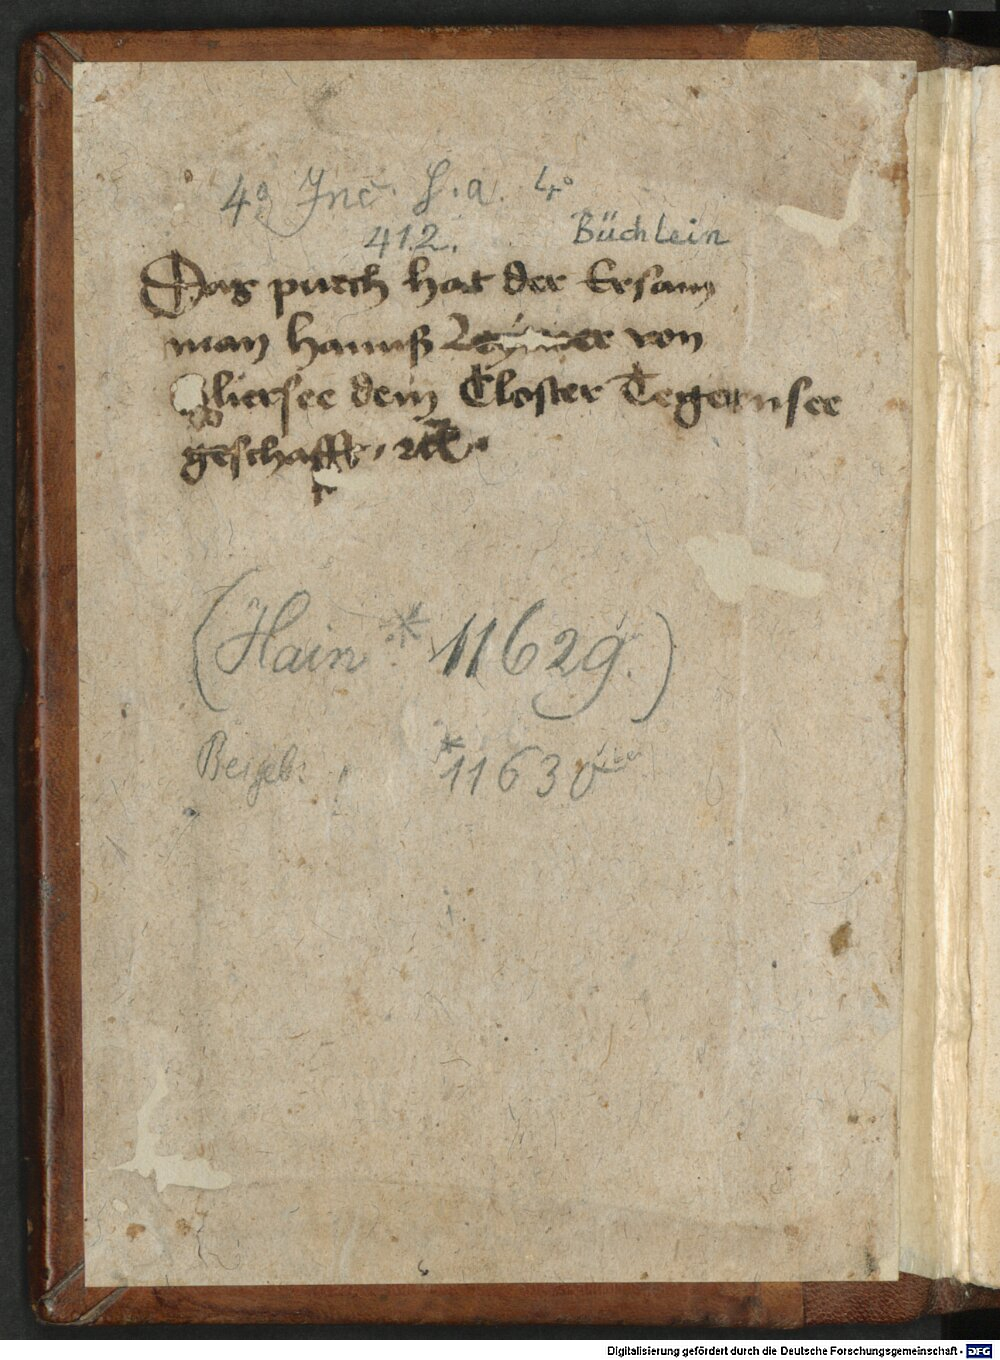 4° Inc. s. a. 4°
412. Büchlein
Das puech hat der Ersam
man Hannß von
Sliersee dem Closter Tegernsee
geschafft
(Hain * 11629.)
* 11630
Digitalisierung gefördert durch die Deutsche Forschungsgemeinschaft - DFG